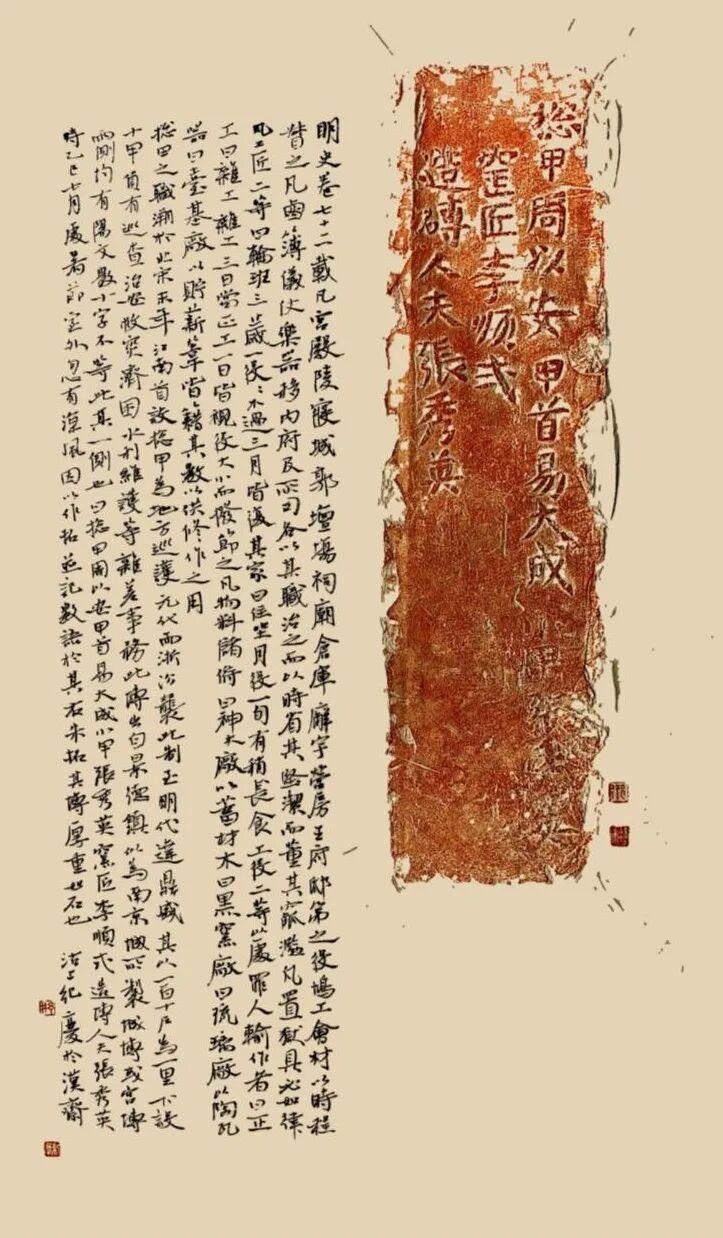 揔甲周以安甲首易大成小甲張秀英
窑匠李順弍
造磚人夫張秀英
明史卷七十二載凡宮殿陵寢城郭壇場祠廟倉庫廨宇營房王府邸第之役鳩工會材以時程
督之凡鹵簿儀仗樂器移內府及所司各以其職治之而以時省其堅潔而董其窳濫凡置獄具必如律
凡工匠二等曰輪班三歲一役役不過三月皆復其家曰住坐月役一旬有稍長食工役二等以處罪人輸作者曰正
工曰雜工雜工三日當正工一日皆視役大小而撥節之凡物料儲偫曰神木廠以蓄材木曰黑窯廠曰琉璃廠以陶瓦
器曰臺基廠以貯薪葦皆籍其數以供修作之用
揔甲之職溯於北宋末年江南首設揔甲為地方巡護元代兩浙沿襲此制至明代達鼎盛其以一百十户為一里下設
十甲首有巡查治安救灾濟困水利維護等雜差事務此磚出自景德鎮以為南京城所製城磚或宮磚
兩側均有陽文數十字不等此其一側也曰揔甲周以安甲首易大成小甲張秀英窯匠李順弍造磚人夫張秀英
時乙巳七月處暑節室外忽有涼風因以作拓並記數語於其右朱拓其磚厚重如石也 沽上紀慶於漢齋